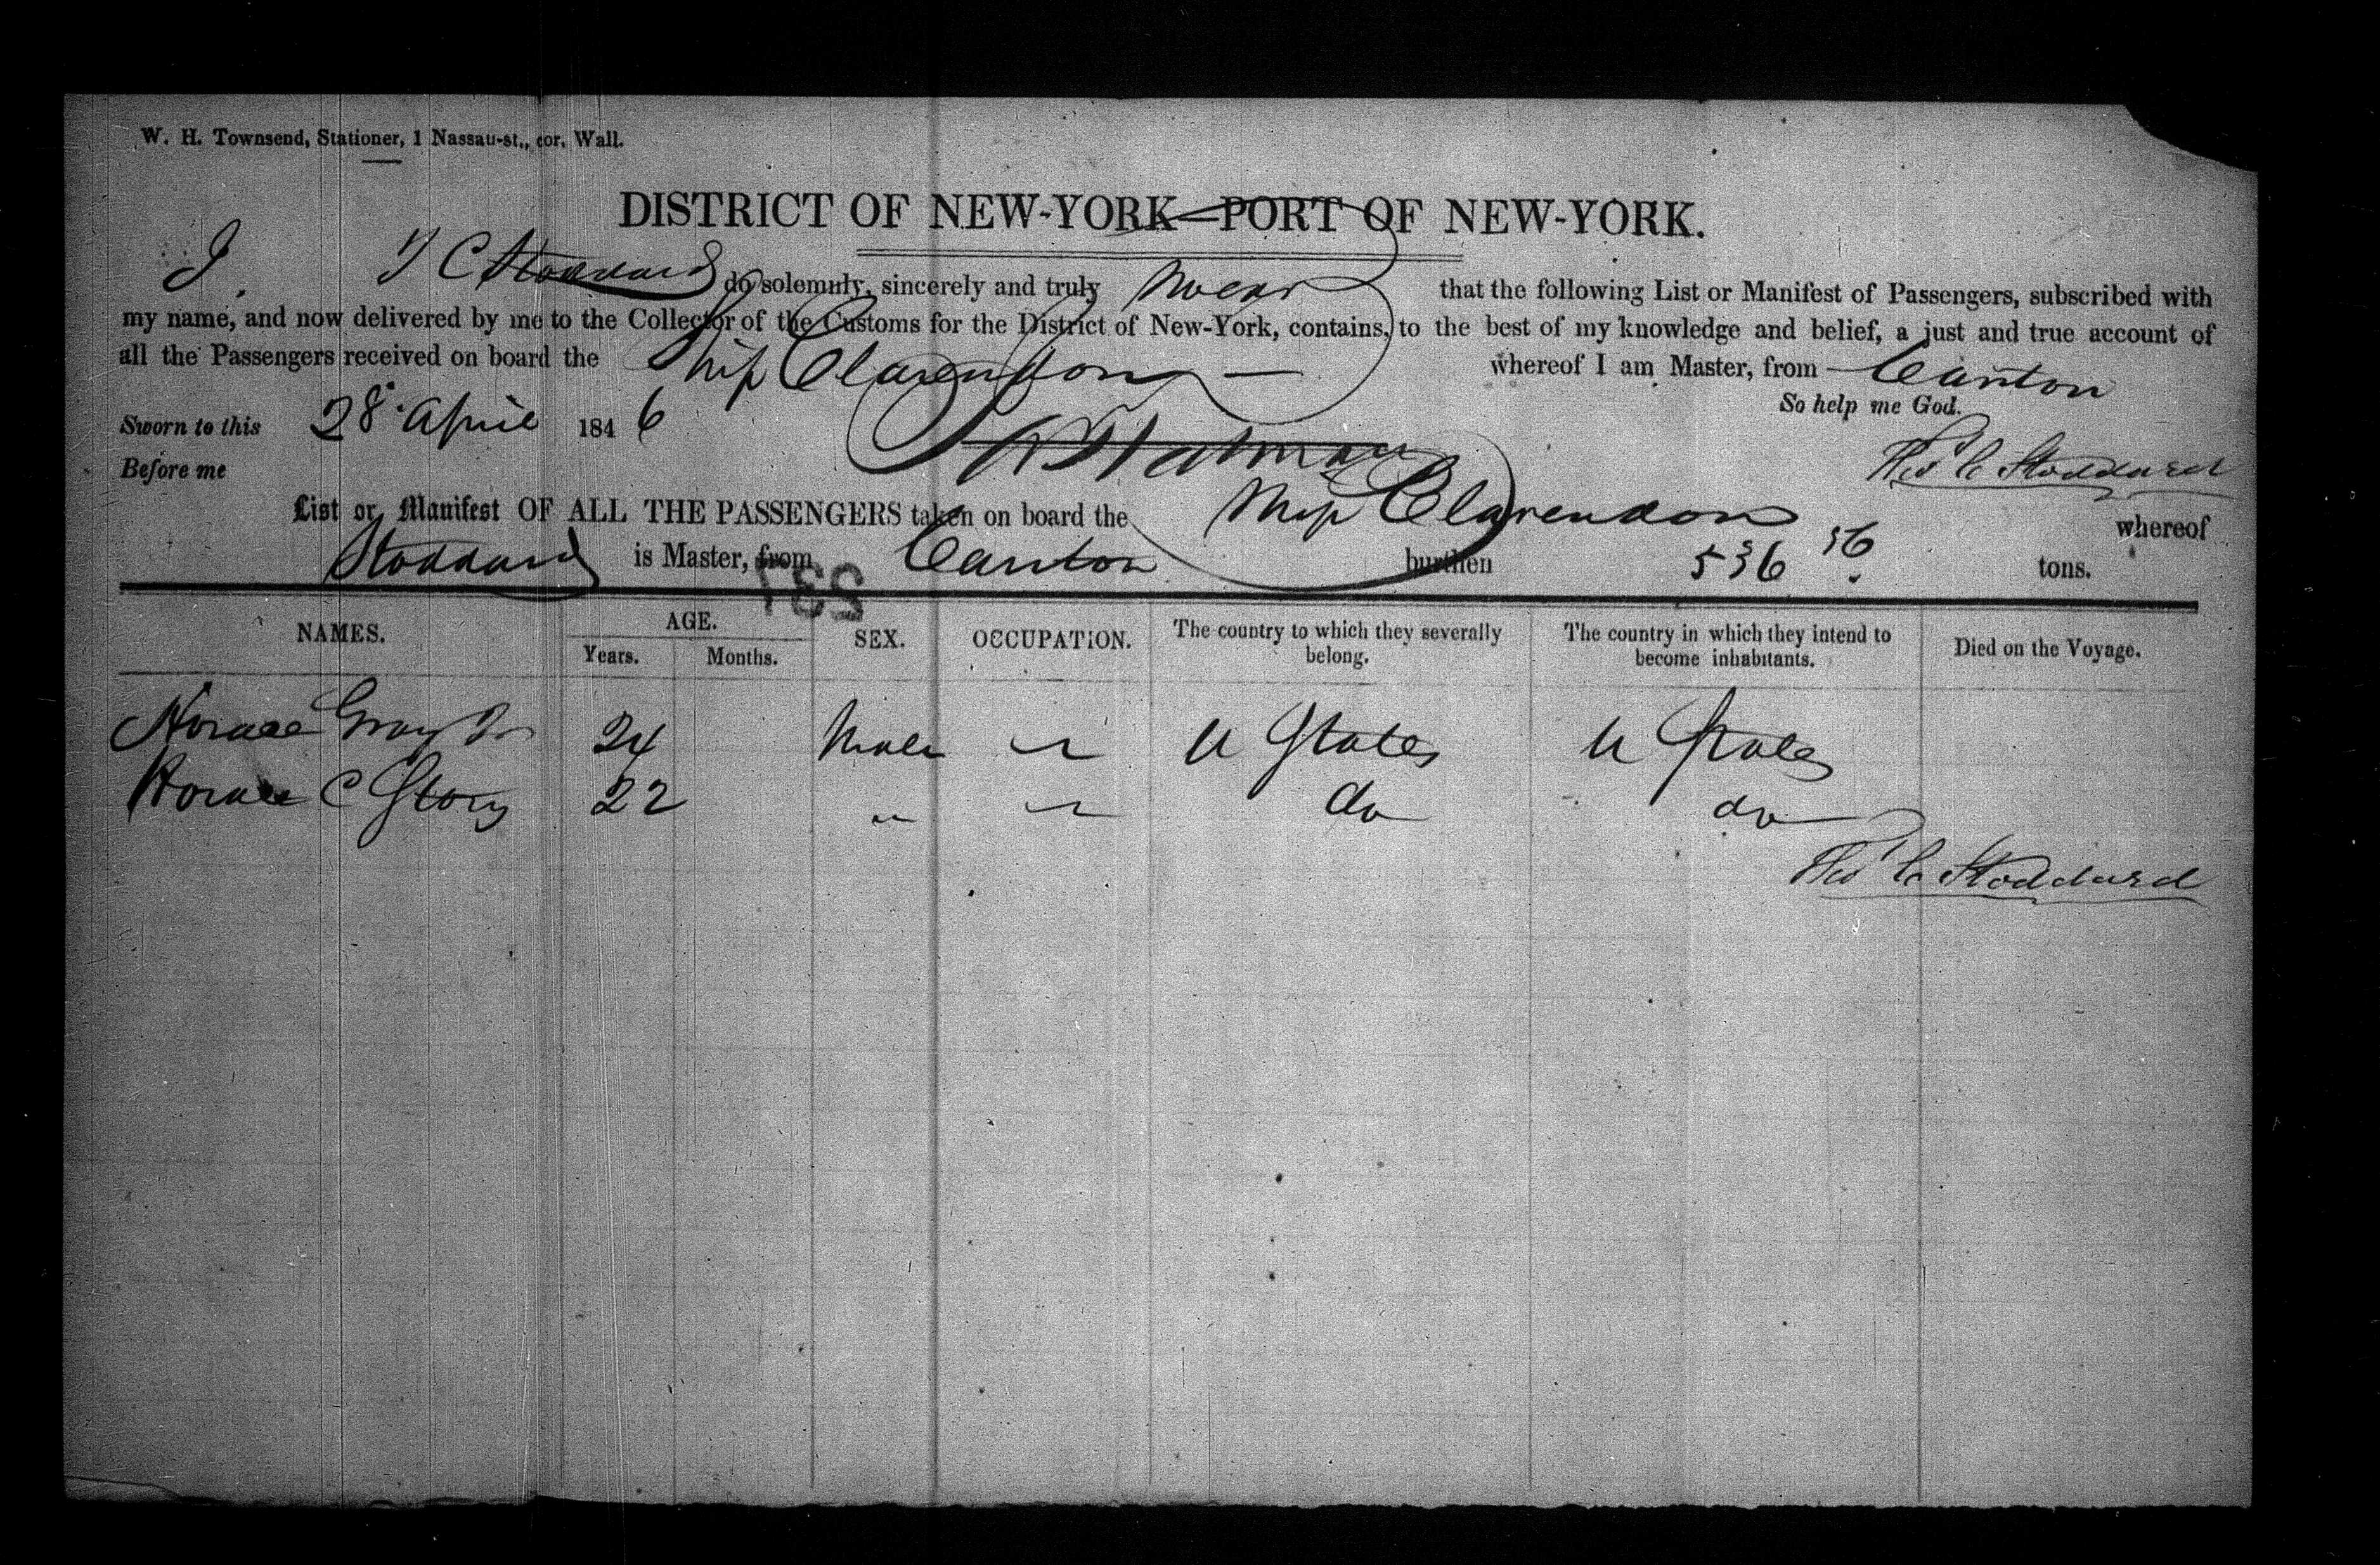 W. H. Townsend, Stationer, 1 Nassau-st., cor. Wall.
DISTRICT OF NEW-YORK—PORT OF NEW-YORK.
I, T C Stoddard do solemnly, sincerely and truly swear that the following List or Manifest of Passengers, subscribed with
my name, and now delivered by me to the Collector of the Customs for the District of New-York, contains, to the best of my knowledge and belief, a just and true account of
all the Passengers received on board the Ship Clarendon whereof I am Master, from Canton
So help me God.
Sworn to this 28 April 1846
Theo C Stoddard
Before me
List or Manifest OF ALL THE PASSENGERS taken on board the Ship Clarendon whereof
Stoddard is Master, from Canton burthen 536 36 tons.
231
NAMES. AGE. SEX. OCCUPATION. The country to which they severally belong. The country in which they intend to become inhabitants. Died on the Voyage.
Years. Months.
Horace Gray Jr 24 Male U States U States
Horace C Story 22 " do do
Theo C Stoddard